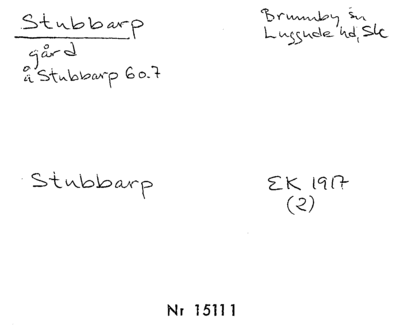 Stubbarp
Brunnby sn
Luggude hd, Sk
gård
å Stubbarp 6o.7
Stubbarp
EK 1917
(2)
Nr 15111